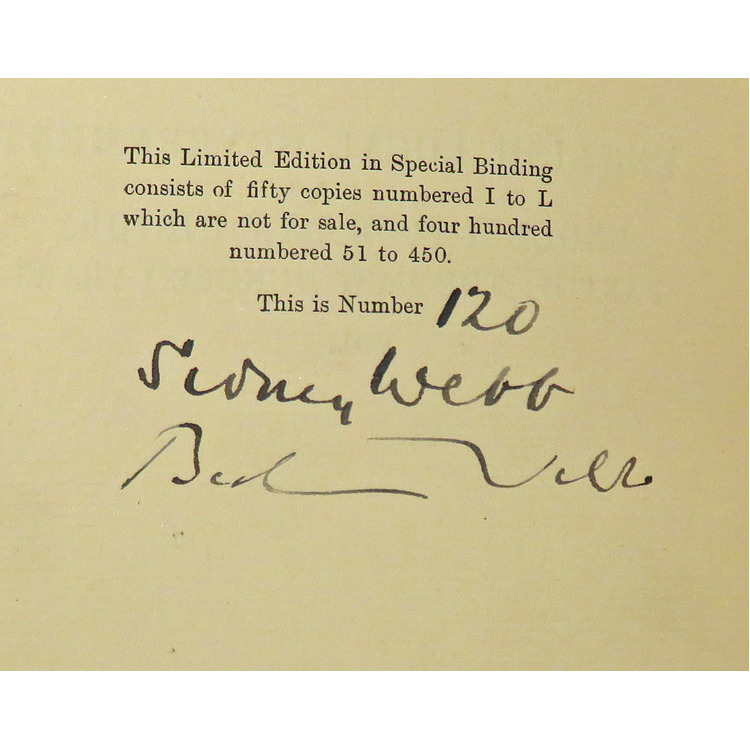 This Limited Edition in Special Binding
consists of fifty copies numbered I to L
which are not for sale, and four hundred
numbered 51 to 450.
This is Number 120
Sidney Webb
Beatrice Webb